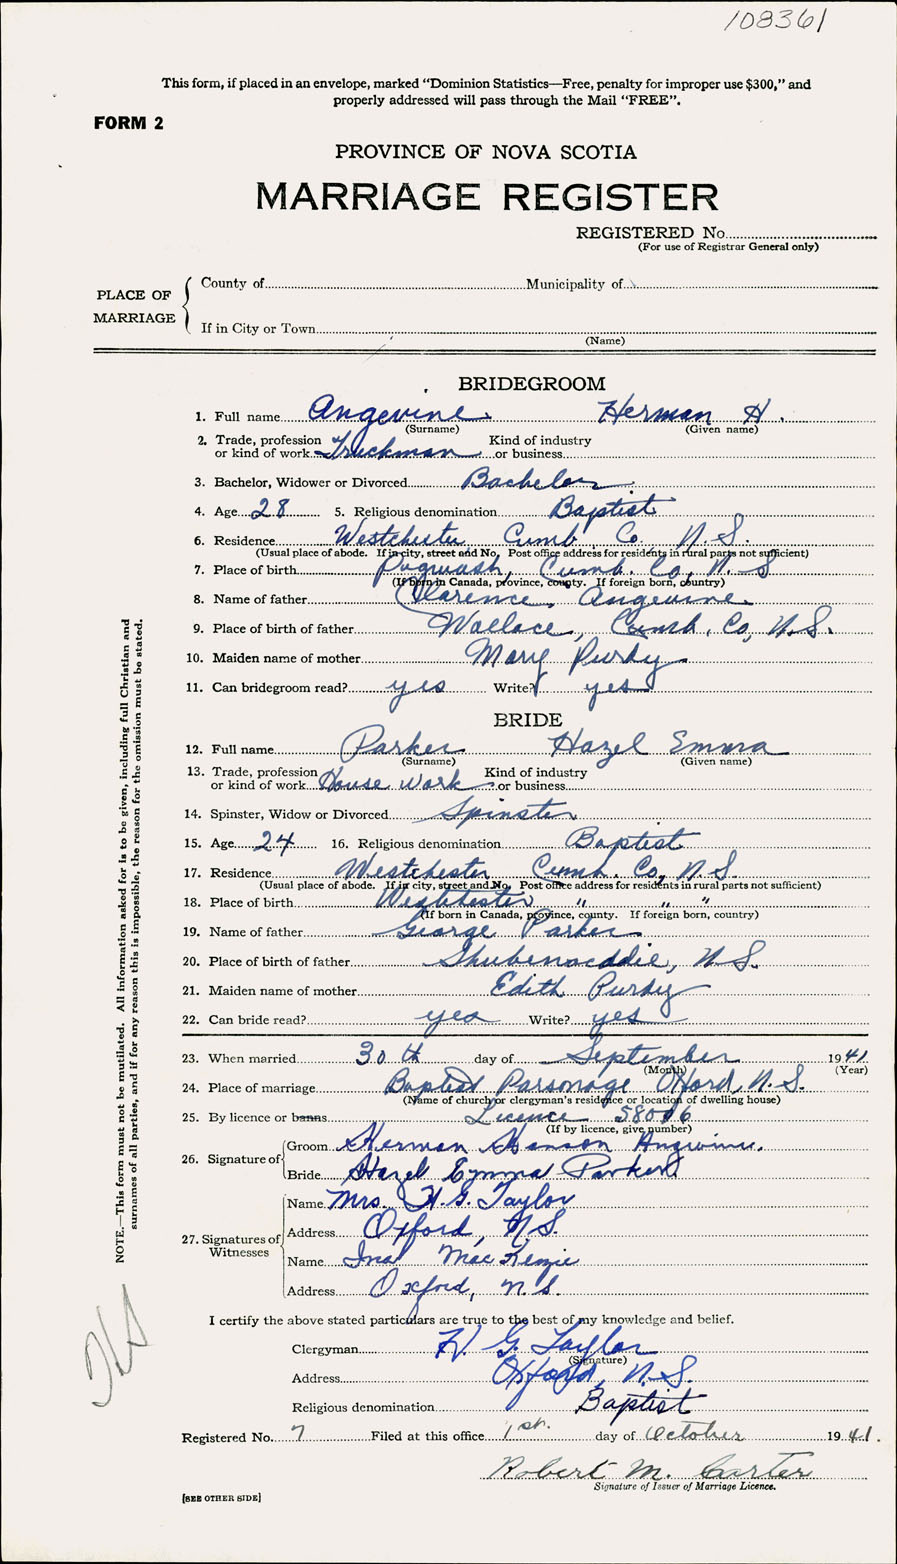 108361
This form, if placed in an envelope, marked “Dominion Statistics—Free, penalty for improper use $300,” and
properly addressed will pass through the Mail “FREE”.
FORM 2
PROVINCE OF NOVA SCOTIA
MARRIAGE REGISTER
REGISTERED No.
(For use of Registrar General only)
PLACE OF MARRIAGE
County of Municipality of
If in City or Town
(Name)
BRIDEGROOM
1. Full name Angevine Herman H.
(Surname) (Given name)
2. Trade, profession or kind of work Truckman Kind of industry or business
3. Bachelor, Widower or Divorced Bachelor
4. Age 28 5. Religious denomination Baptist
6. Residence Westchester Cumb. Co. N.S.
(Usual place of abode. If in city, street and No. Post office address for residents in rural parts not sufficient)
7. Place of birth Pugwash, Cumb. Co, N.S
(If born in Canada, province, county. If foreign born, country)
8. Name of father Clarence Angevine
9. Place of birth of father Wallace, Cumb. Co, N.S.
10. Maiden name of mother Mary Purdy
11. Can bridegroom read? yes Write? yes
BRIDE
12. Full name Parker Hazel Emma
(Surname) (Given name)
13. Trade, profession or kind of work House work Kind of industry or business
14. Spinster, Widow or Divorced Spinster
15. Age 24 16. Religious denomination Baptist
17. Residence Westchester Cumb. Co, N.S.
(Usual place of abode. If in city, street and No. Post office address for residents in rural parts not sufficient)
18. Place of birth Westchester " " "
(If born in Canada, province, county. If foreign born, country)
19. Name of father George Parker
20. Place of birth of father Shubenacddie, N.S.
21. Maiden name of mother Edith Purdy
22. Can bride read? yes Write? yes
23. When married 30th day of September 1941
(Month) (Year)
24. Place of marriage Baptist Parsonage Oxford, N.S.
(Name of church or clergyman's residence or location of dwelling house)
25. By licence or banns Licence
(If by licence, give number)
26. Signature of
Groom Herman Hanson Angevine.
Bride Hazel Emma Parker
27. Signatures of Witnesses
Name Mrs. H.G. Taylor
Address Oxford, N.S.
Name Ina MacKenzie
Address Oxford, N.S.
I certify the above stated particulars are true to the best of my knowledge and belief.
Clergyman H. G. Taylor
(Signature)
Address Oxford, N.S.
Religious denomination Baptist
Registered No. 7 Filed at this office 1st. day of October 1941.
Robert M. Carter
Signature of Issuer of Marriage Licence.
[SEE OTHER SIDE]
NOTE.—This form must not be mutilated. All information asked for is to be given, including full Christian and
surnames of all parties, and if for any reason this is impossible, the reason for the omission must be stated.